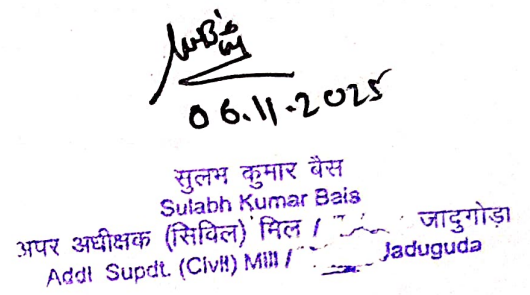 06.11.2025
सुलभ कुमार बैस
Sulabh Kumar Bais
अपर अधीक्षक (सिविल) मिल / जादुगोड़ा
Addl Supdt. (Civil) Mill / Jaduguda